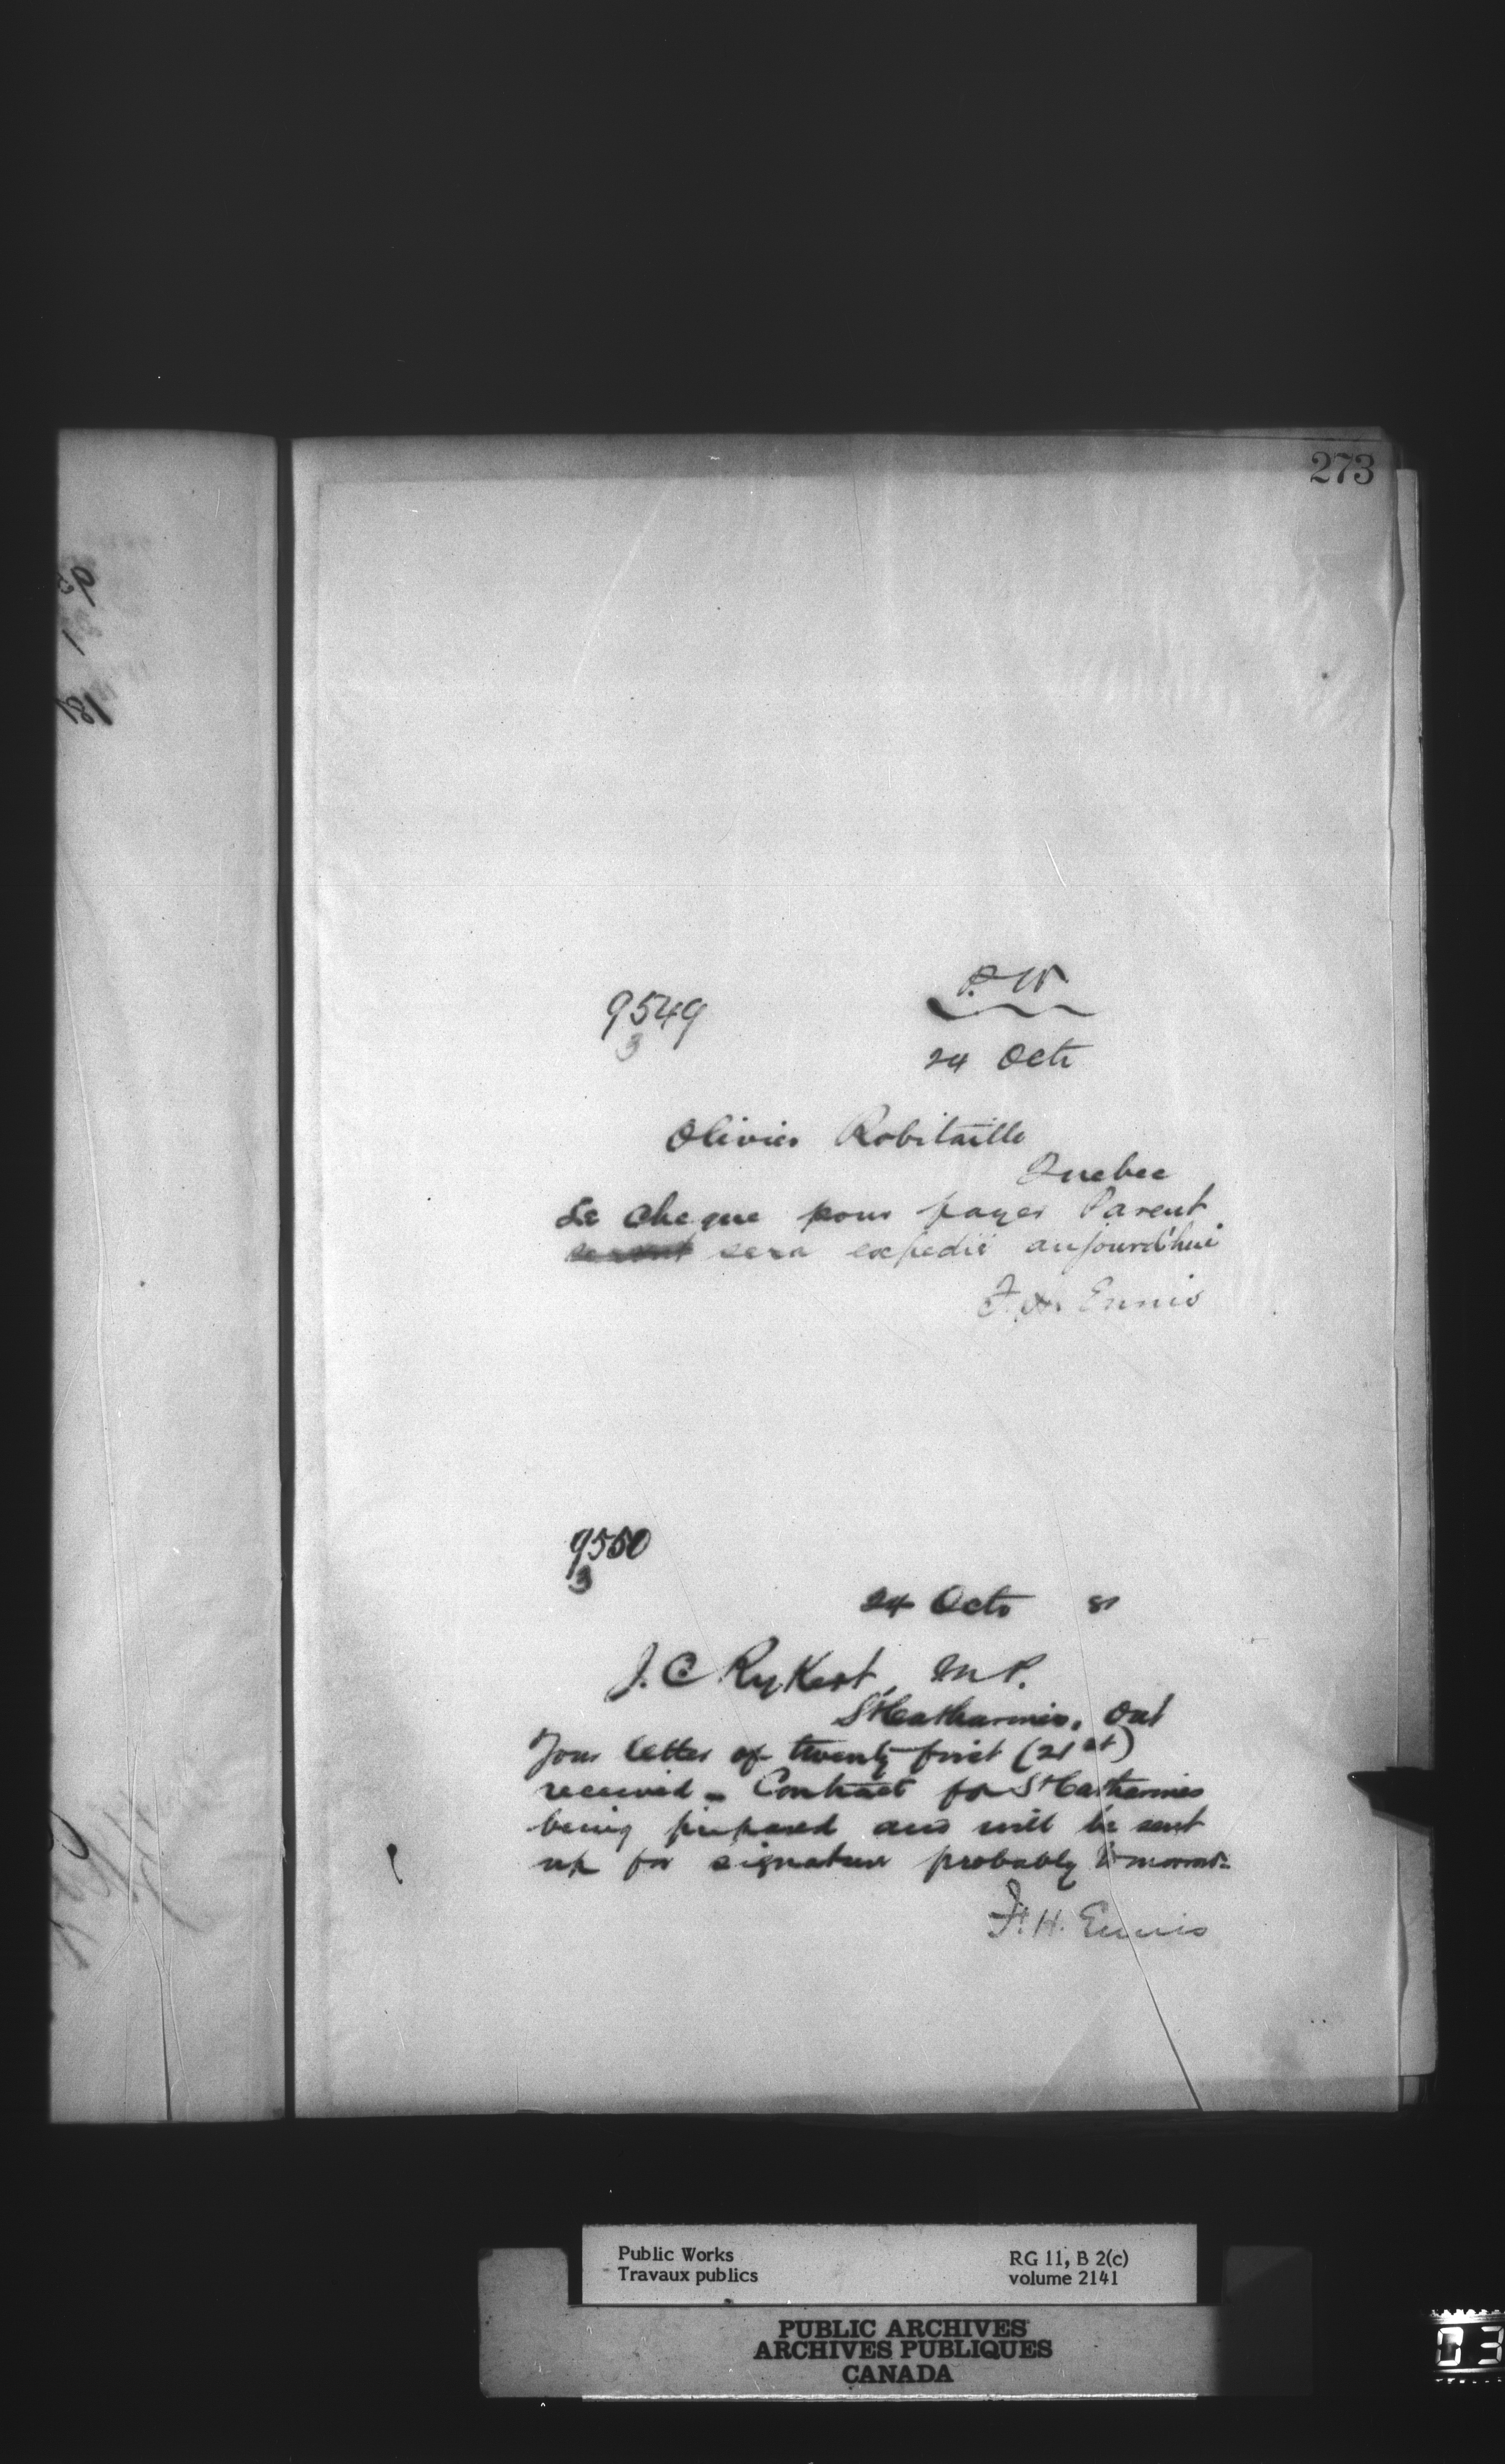 273
P. W.
9549
3
24 Octr
Olivier Robitaille
Quebec
Le cheque pour payer Parent
sera expedié aujourd'hui
F. H. Ennis
9550
3
24 Octr 81
J. C Rykert, M P.
St Catharines, Ont
Your letter of twenty first (21st)
received - Contract for St Catharines
being prepared and will be sent
up for signature probably tomorrow.
F. H. Ennis
Public Works
Travaux publics
RG 11, B 2(c)
volume 2141
PUBLIC ARCHIVES
ARCHIVES PUBLIQUES
CANADA
03